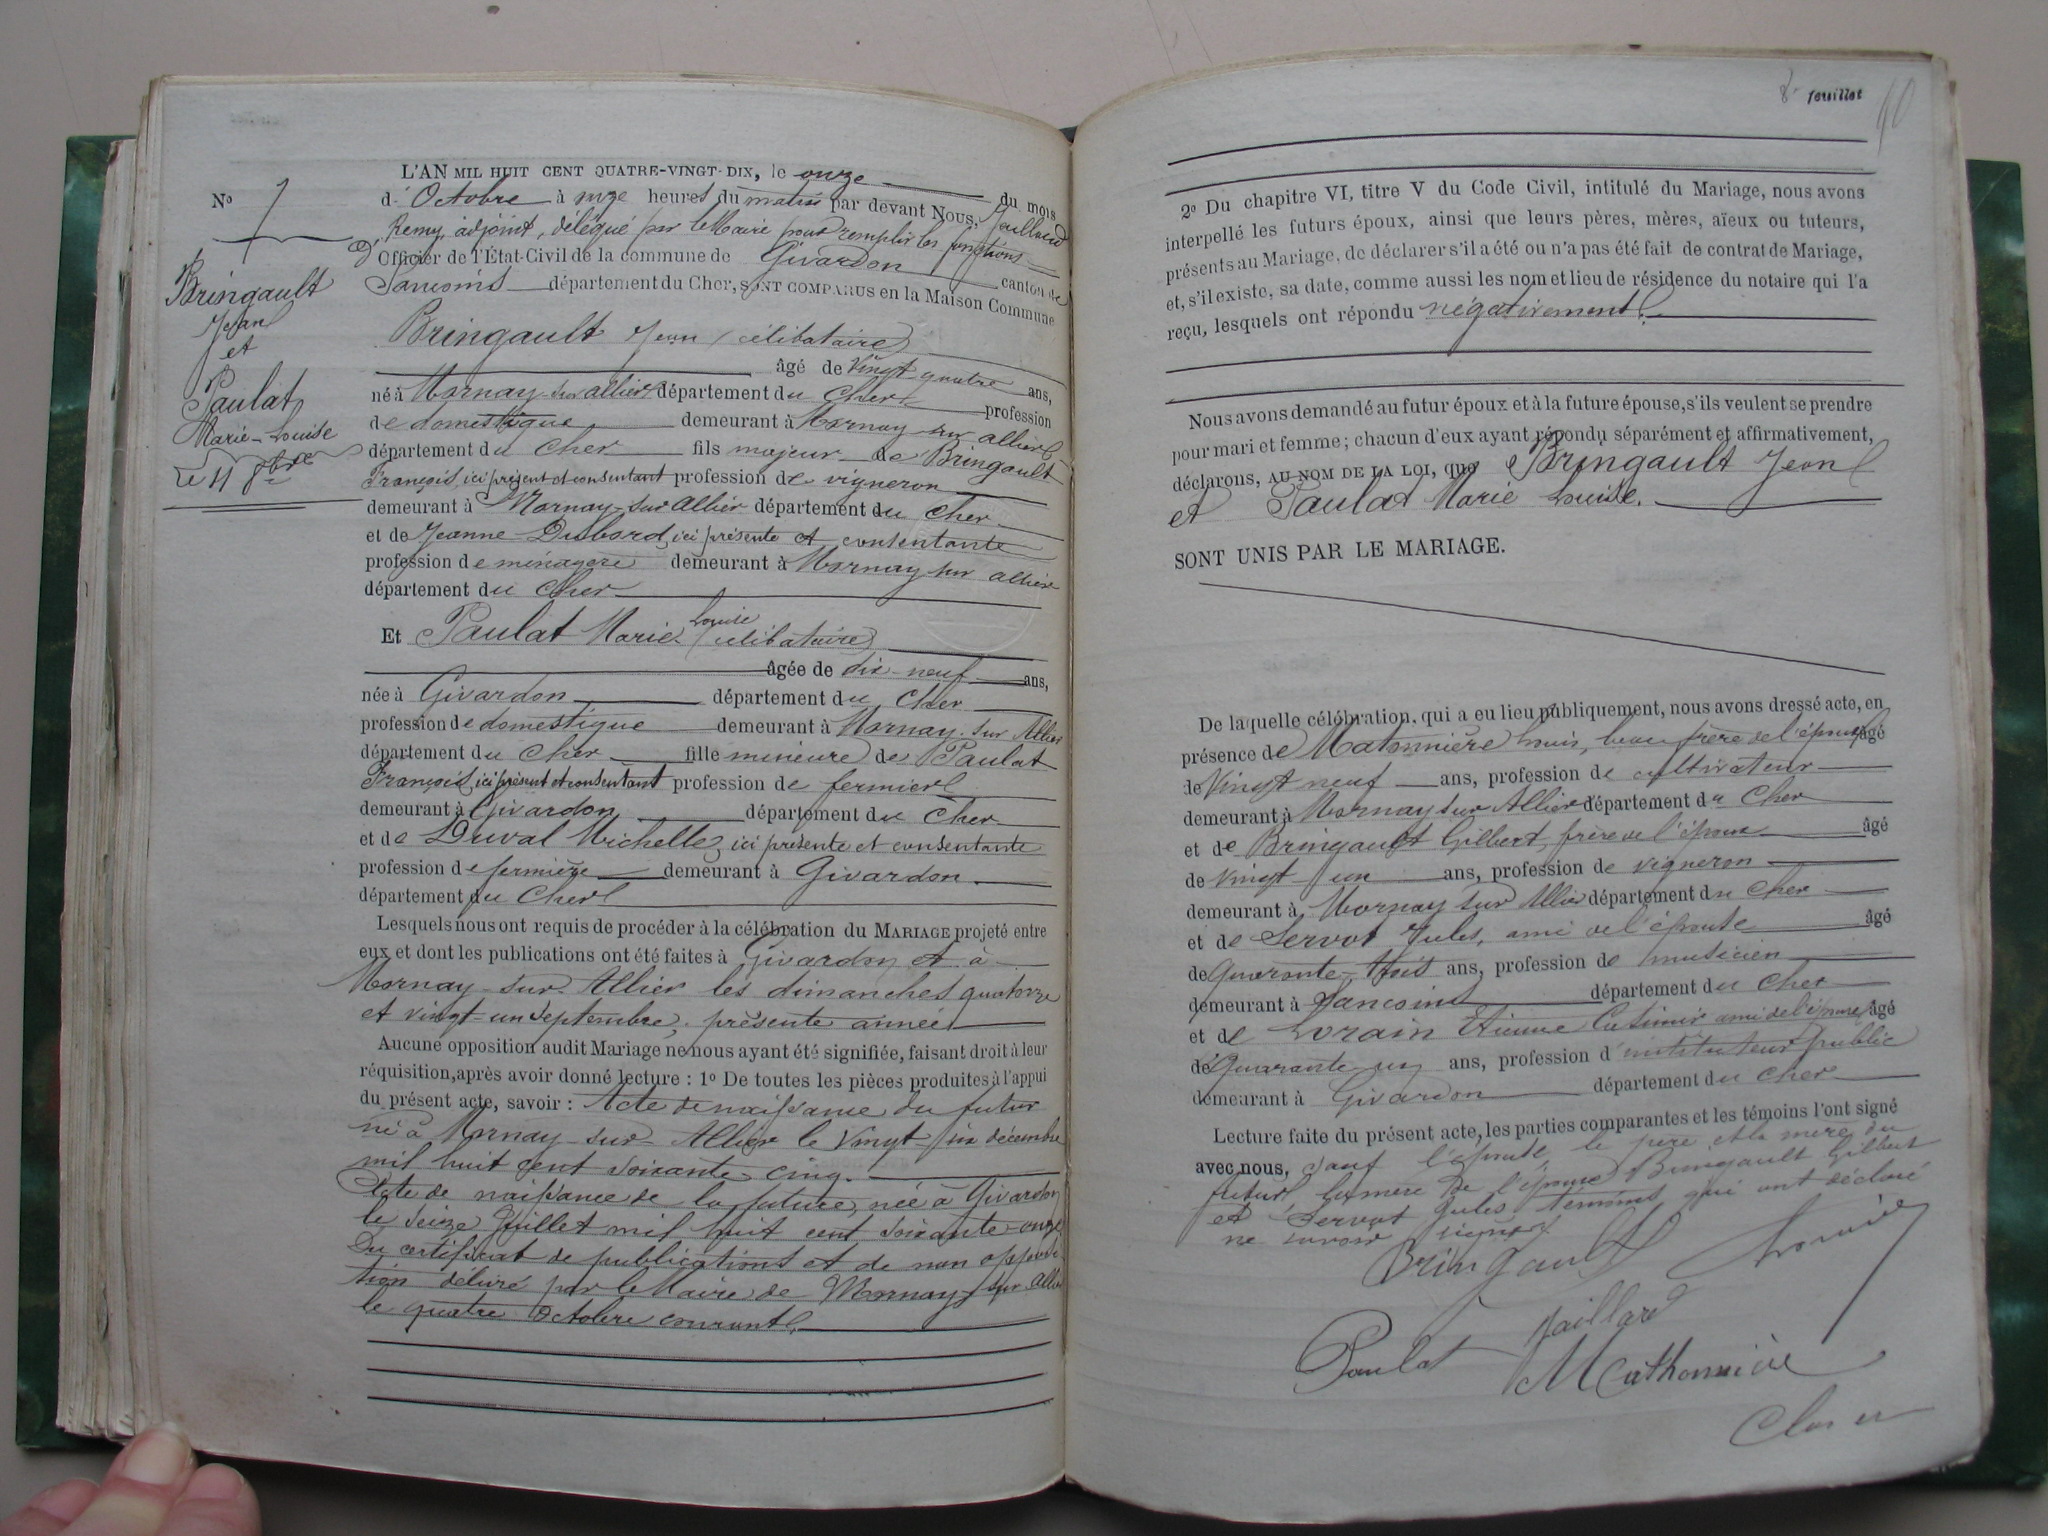 No 7
Bringault
Jean
et
Paulat
Marie-Louise
Le 11 8bre
L'AN MIL HUIT CENT QUATRE-VINGT-DIX, le onze du mois
d'Octobre à onze heures du matin par devant Nous, Jaillard
Remy, adjoint, délégué par le Maire pour remplir les fonctions
d'Officier de l'État-Civil de la commune de Givardon canton de
Sancoins département du Cher, SONT COMPARUS en la Maison Commune
Bringault Jean (célibataire)
âgé de Vingt-quatre ans,
né à Mornay-sur-allier département du Cher profession
de domestique demeurant à Mornay sur allier
département du Cher fils majeur de Bringault
François, ici présent et consentant profession de vigneron
demeurant à Mornay-sur-Allier département du Cher
et de Jeanne Dubard, ici présente et consentante
profession de ménagère demeurant à Mornay sur allier
département du Cher
Et Paulat Marie Louise (célibataire)
âgée de dix-neuf ans,
née à Givardon département du Cher
profession de domestique demeurant à Mornay-sur Allier
département du Cher fille mineure de Paulat
François, ici présent et consentant profession de fermier
demeurant à Givardon département du Cher
et de Duval Michelle, ici présente et consentante
profession de fermière demeurant à Givardon
département du Cher
Lesquels nous ont requis de procéder à la célébration du MARIAGE projeté entre
eux et dont les publications ont été faites à Givardon et à
Mornay-sur-Allier les dimanches quatorze
et vingt-un Septembre, présente année
Aucune opposition audit Mariage ne nous ayant été signifiée, faisant droit à leur
réquisition, après avoir donné lecture : 1o De toutes les pièces produites à l'appui
du présent acte, savoir : Acte de naissance du futur
né à Mornay-sur-Allier le Vingt-six décembre
mil huit cent soixante-cinq.
Acte de naissance de la future, née à Givardon
le seize Juillet mil huit cent soixante-onze
Du certificat de publications et de non opposi-
tion délivré par le Maire de Mornay-sur-Allier
le quatre Octobre courant.
8e feuillet
2o Du chapitre VI, titre V du Code Civil, intitulé du Mariage, nous avons
interpellé les futurs époux, ainsi que leurs pères, mères, aïeux ou tuteurs,
présents au Mariage, de déclarer s'il a été ou n'a pas été fait de contrat de Mariage,
et, s'il existe, sa date, comme aussi les nom et lieu de résidence du notaire qui l'a
reçu, lesquels ont répondu négativement.
Nous avons demandé au futur époux et à la future épouse, s'ils veulent se prendre
pour mari et femme ; chacun d'eux ayant répondu séparément et affirmativement,
déclarons, AU NOM DE LA LOI, que Bringault Jean
et Paulat Marie Louise.
SONT UNIS PAR LE MARIAGE.
De laquelle célébration, qui a eu lieu publiquement, nous avons dressé acte, en
présence de Matonnière Louis, beau frère de l'époux âgé
de Vingt neuf ans, profession de cultivateur
demeurant à Mornay sur Allier département du Cher
et de Bringault Gilbert, frère de l'époux âgé
de Vingt un ans, profession de vigneron
demeurant à Mornay sur Allier département du Cher
et de Servot Jules, ami de l'épouse âgé
de Quarante-trois ans, profession de musicien
demeurant à Sancoins département du Cher
et de Lorain Etienne Casimir ami de l'épouse, âgé
de Quarante un ans, profession d'instituteur public
demeurant à Givardon département du Cher
Lecture faite du présent acte, les parties comparantes et les témoins l'ont signé
avec nous, sauf l'épouse, le père et la mère du
futur, la mère de l'épouse Bringault Gilbert
et Servot Jules témoins qui ont déclaré
ne savoir signer
Bringault
Jaillard
Paulat Mathonnière